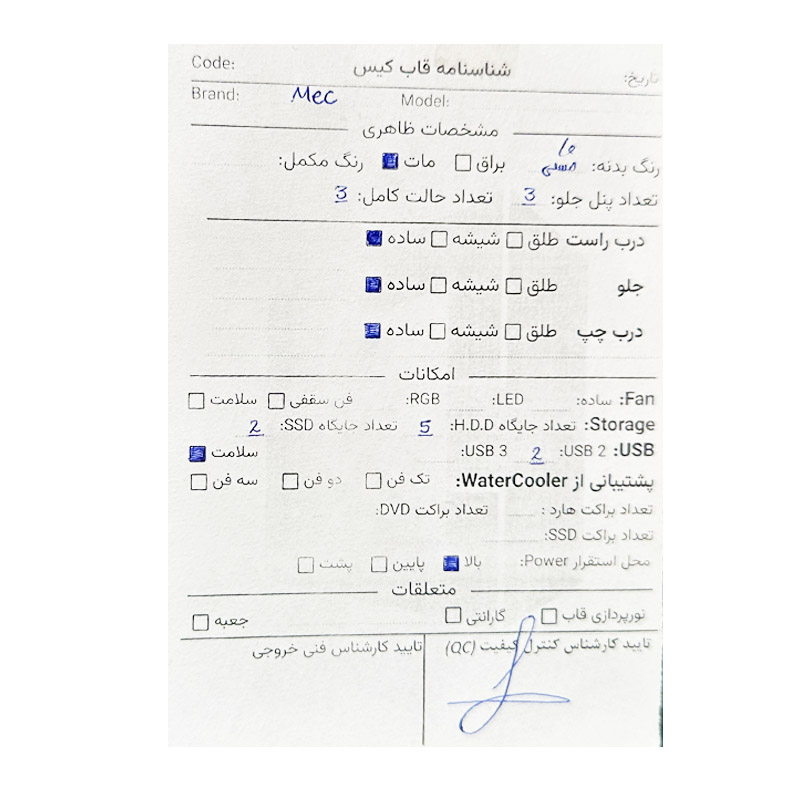 Code: شناسنامه قاب کیس تاریخ:
Brand: Mec Model:
مشخصات ظاهری
رنگ بدنه: براق مات رنگ مکمل:
تعداد پنل جلو: 3 تعداد حالت کامل: 3
درب راست طلق شیشه ساده
جلو طلق شیشه ساده
درب چپ طلق شیشه ساده
امکانات
Fan: ساده: LED: RGB: فن سقفی سلامت
Storage: تعداد جایگاه H.D.D: 5 تعداد جایگاه SSD: 2
USB: USB 2: 2 USB 3: سلامت
پشتیبانی از WaterCooler: تک فن دو فن سه فن
تعداد براکت هارد : تعداد براکت DVD:
تعداد براکت SSD:
محل استقرار Power: بالا پایین پشت
متعلقات
نورپردازی قاب گارانتی جعبه
تایید کارشناس کنترل کیفیت (QC) تایید کارشناس فنی خروجی